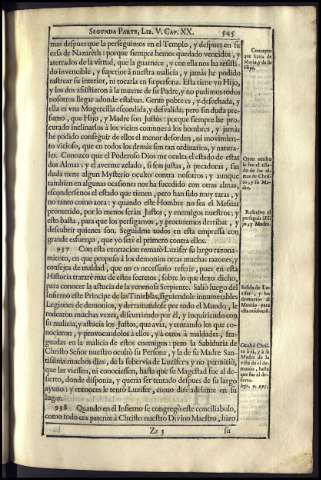 SEGUNDA PARTE, LIB. V. CAP. XX. 545
mas despues que la perseguimos en el Templo, y despues en su
casa de Nazareth: porque siempre hemos quedado vencidos, y
aterrados de la virtud, que la guarnece, y con ella nos ha resisti-
do invencible, y superior à nuestra malicia, y jamàs he podido
rastrear su interior, ni tocarla en su persona. Esta tiene vn Hijo,
y los dos assistieron à la muerte de su Padre, y no pudimos todos
nosotros llegar adonde estaban. Gente pobre es, y desechada, y
ella es vna Mugercilla escondida, y desvalida; pero sin duda presu-
mo, que Hijo, y Madre son Justos: porque siempre he pro-
curado inclinarlos à los vicios comunes à los hombres, y jamàs
he podido conseguir de ellos el menor desorden, ni movimien-
to vicioso, que en todos los demàs son tan ordinarios, y natura-
les. Conozco que el Poderoso Dios me oculta el estado de estas
dos Almas: y el averme zelado, si son justas, ò pecadoras, sin
duda tiene algun Mysterio oculto contra nosotros; y aunque
tambien en algunas ocasiones nos ha sucedido con otras almas,
escondersenos el estado que tienen, pero han sido muy raras, y
no tanto como aora: y quando este Hombre no sea el Messias
prometido, por lo menos seràn Justos, y enemigos nuestros; y
esto basta, para que los persigamos, y procuremos derribar, y
descubrir quienes son. Seguidme todos en esta empressa con
grande esfuerço, que yo serè el primero contra ellos.
937 Con esta exortacion rematò Luzifer su largo razona-
miento, en que propuso à los demonios otras muchas razones, y
consejos de maldad, que no es necessario referir, pues en esta
Historia tratarè mas de estos secretos, sobre lo que dexo dicho,
para conocer la astucia de la venenosa Serpiente. Saliò luego del
Infierno este Principe de las Tinieblas, siguiendole innumerables
Legiones de demonios, y derramandose por todo el Mundo, le
rodearon muchas vezes, discurriendo por èl, y inquiriendo con
su malicia, y astucia los Justos, que avia, y tentando los que co-
nocieron, y provocandolos à ellos, y à otros à maldades, fra-
guadas en la malicia de estos enemigos: pero la Sabiduria de
Christo Señor nuestro ocultò su Persona, y la de su Madre San-
tissima muchos dias, de la sobervia de Luzifer; y no permitiò,
que las viessen, ni conociessen, hasta que su Magestad fue al de-
sierto, donde disponia, y queria ser tentado despues de su largo
ayuno; y entonces le tentò Luzifer, como dirè adelante en su
lugar.
938 Quando en el Infierno se congregò este conciliabulo,
como todo era patente à Christo nuestro Divino Maestro, hizo
Zz 3 su